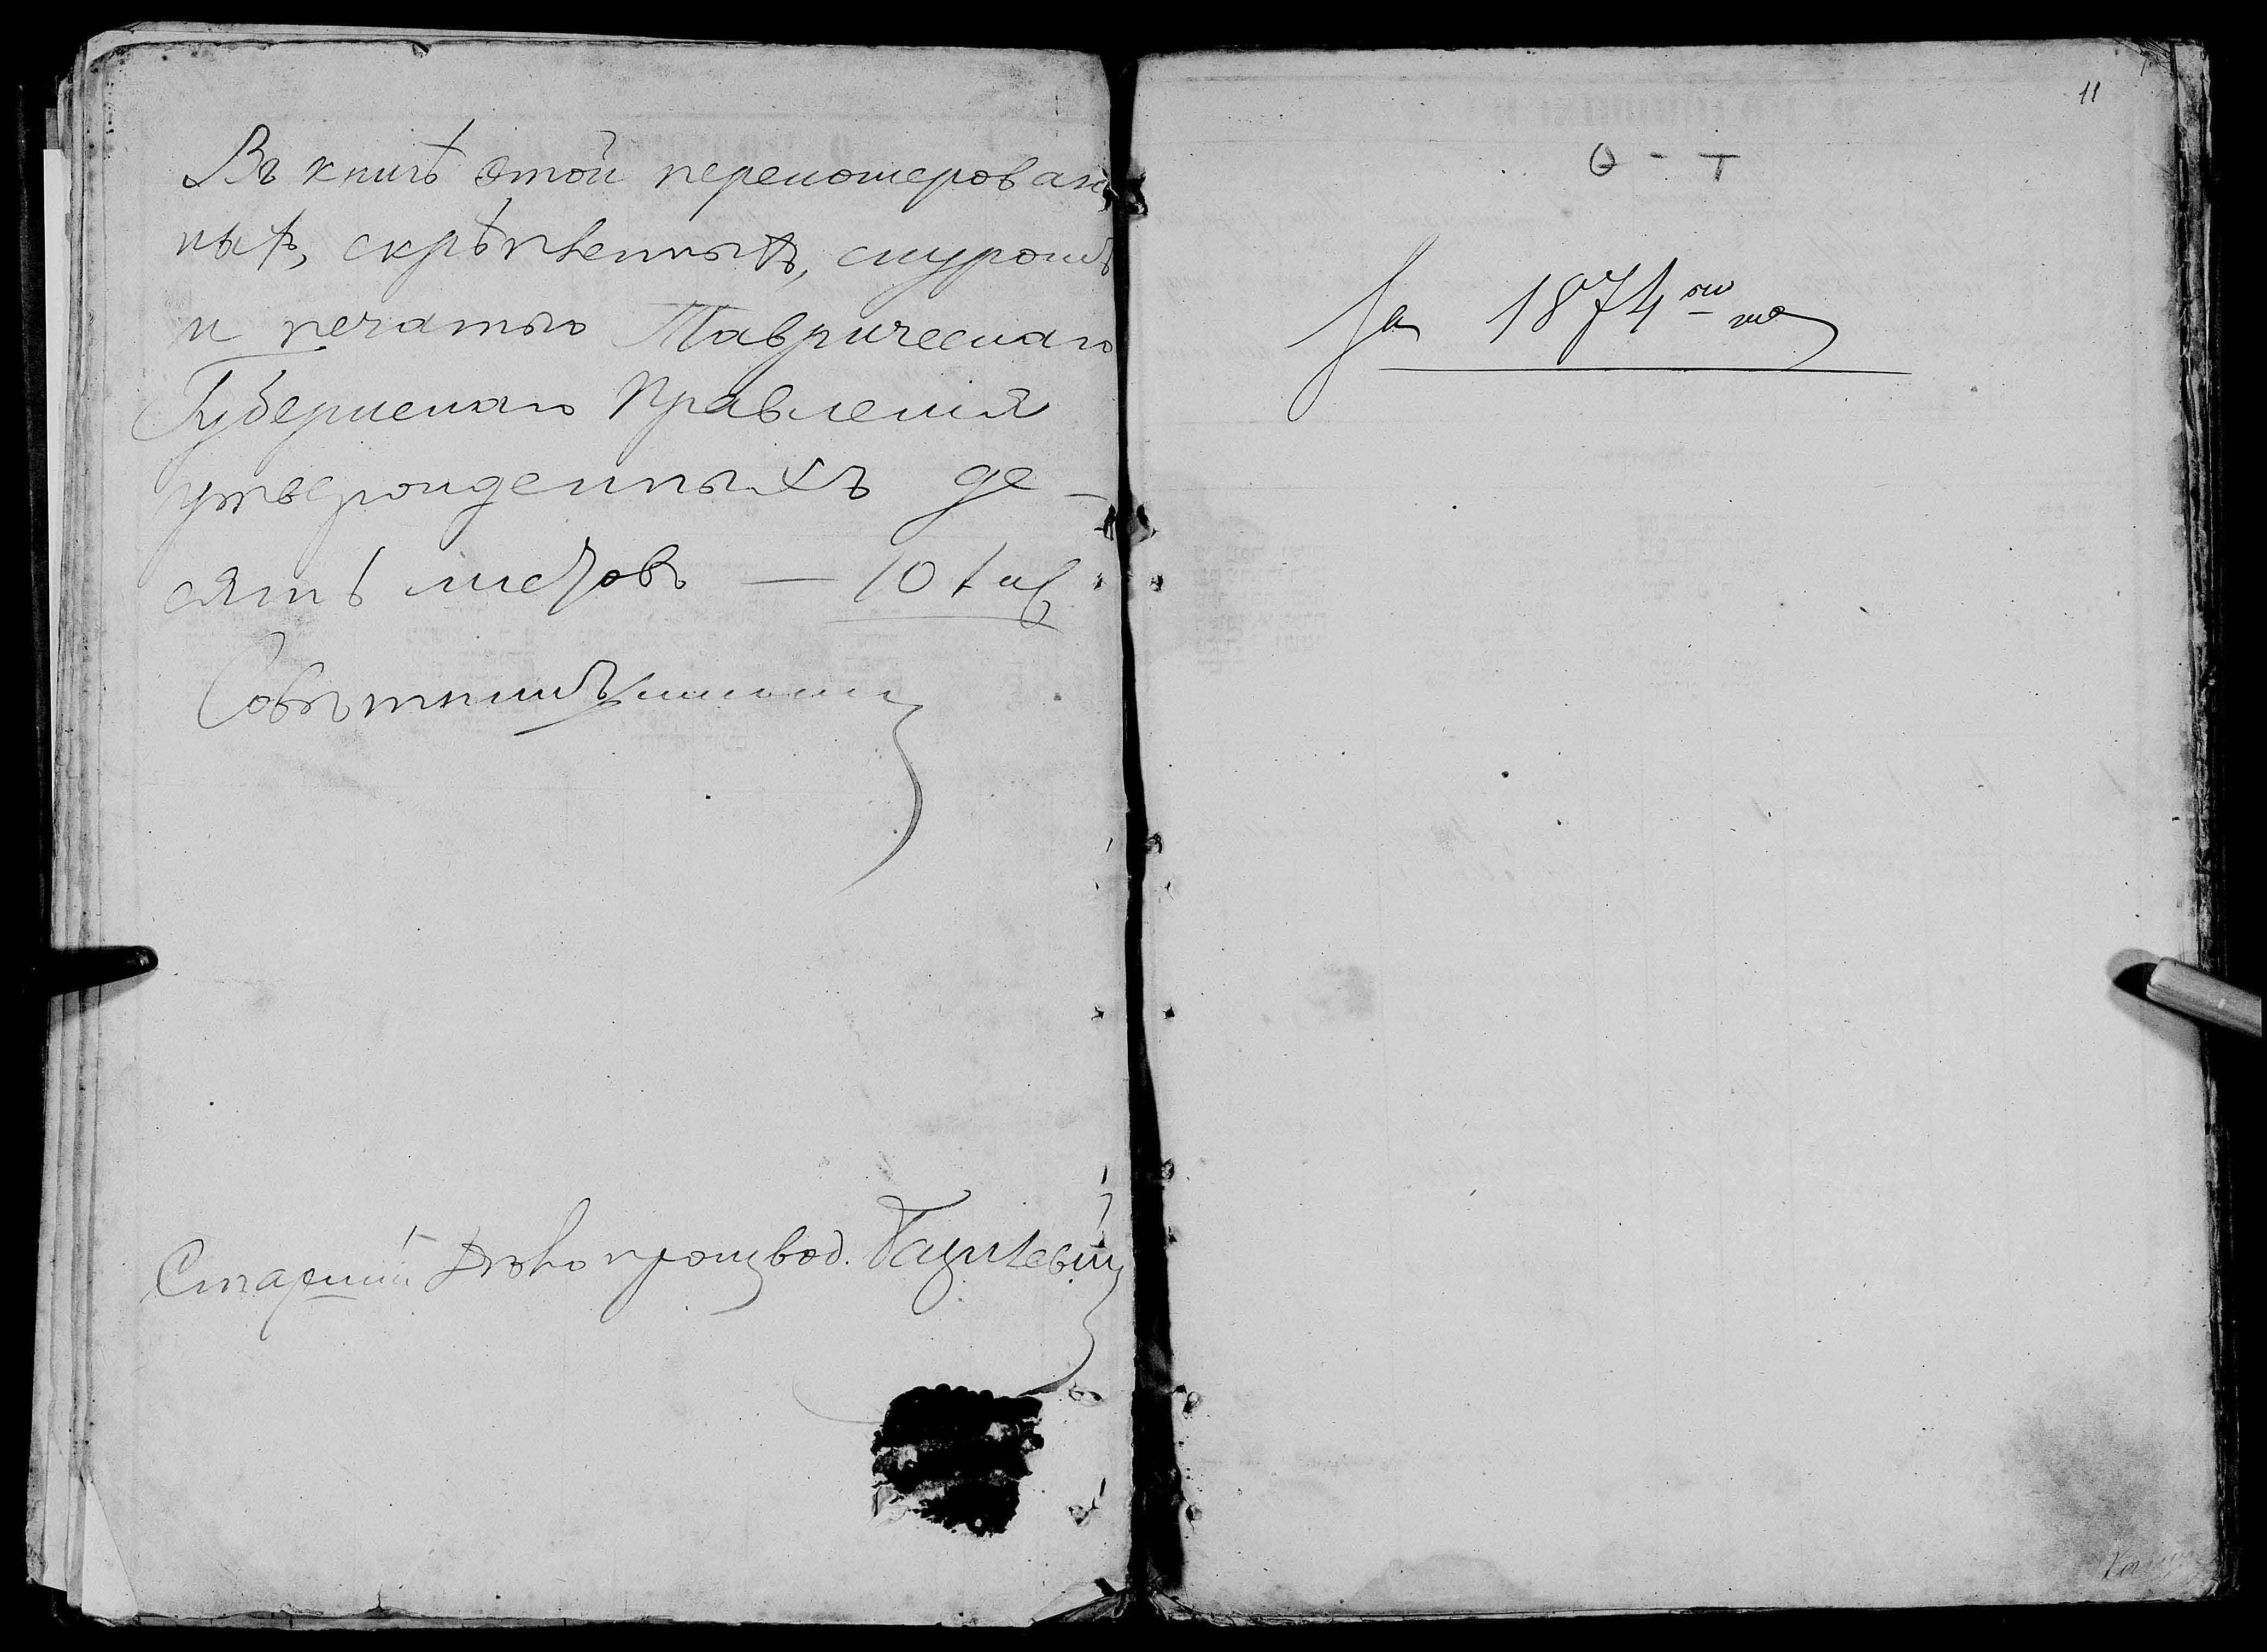 Въ книгѣ этой переномерован
ныхъ, скрѣпленныхъ, шнуромъ
и печатью Таврическаго
Губернскаго Правленія
утвержденныхъ де-
сять листовъ — 10 лис
Совѣтникъ
Старшій Дѣлопроизвод.
11
О - Т
За 1874 год